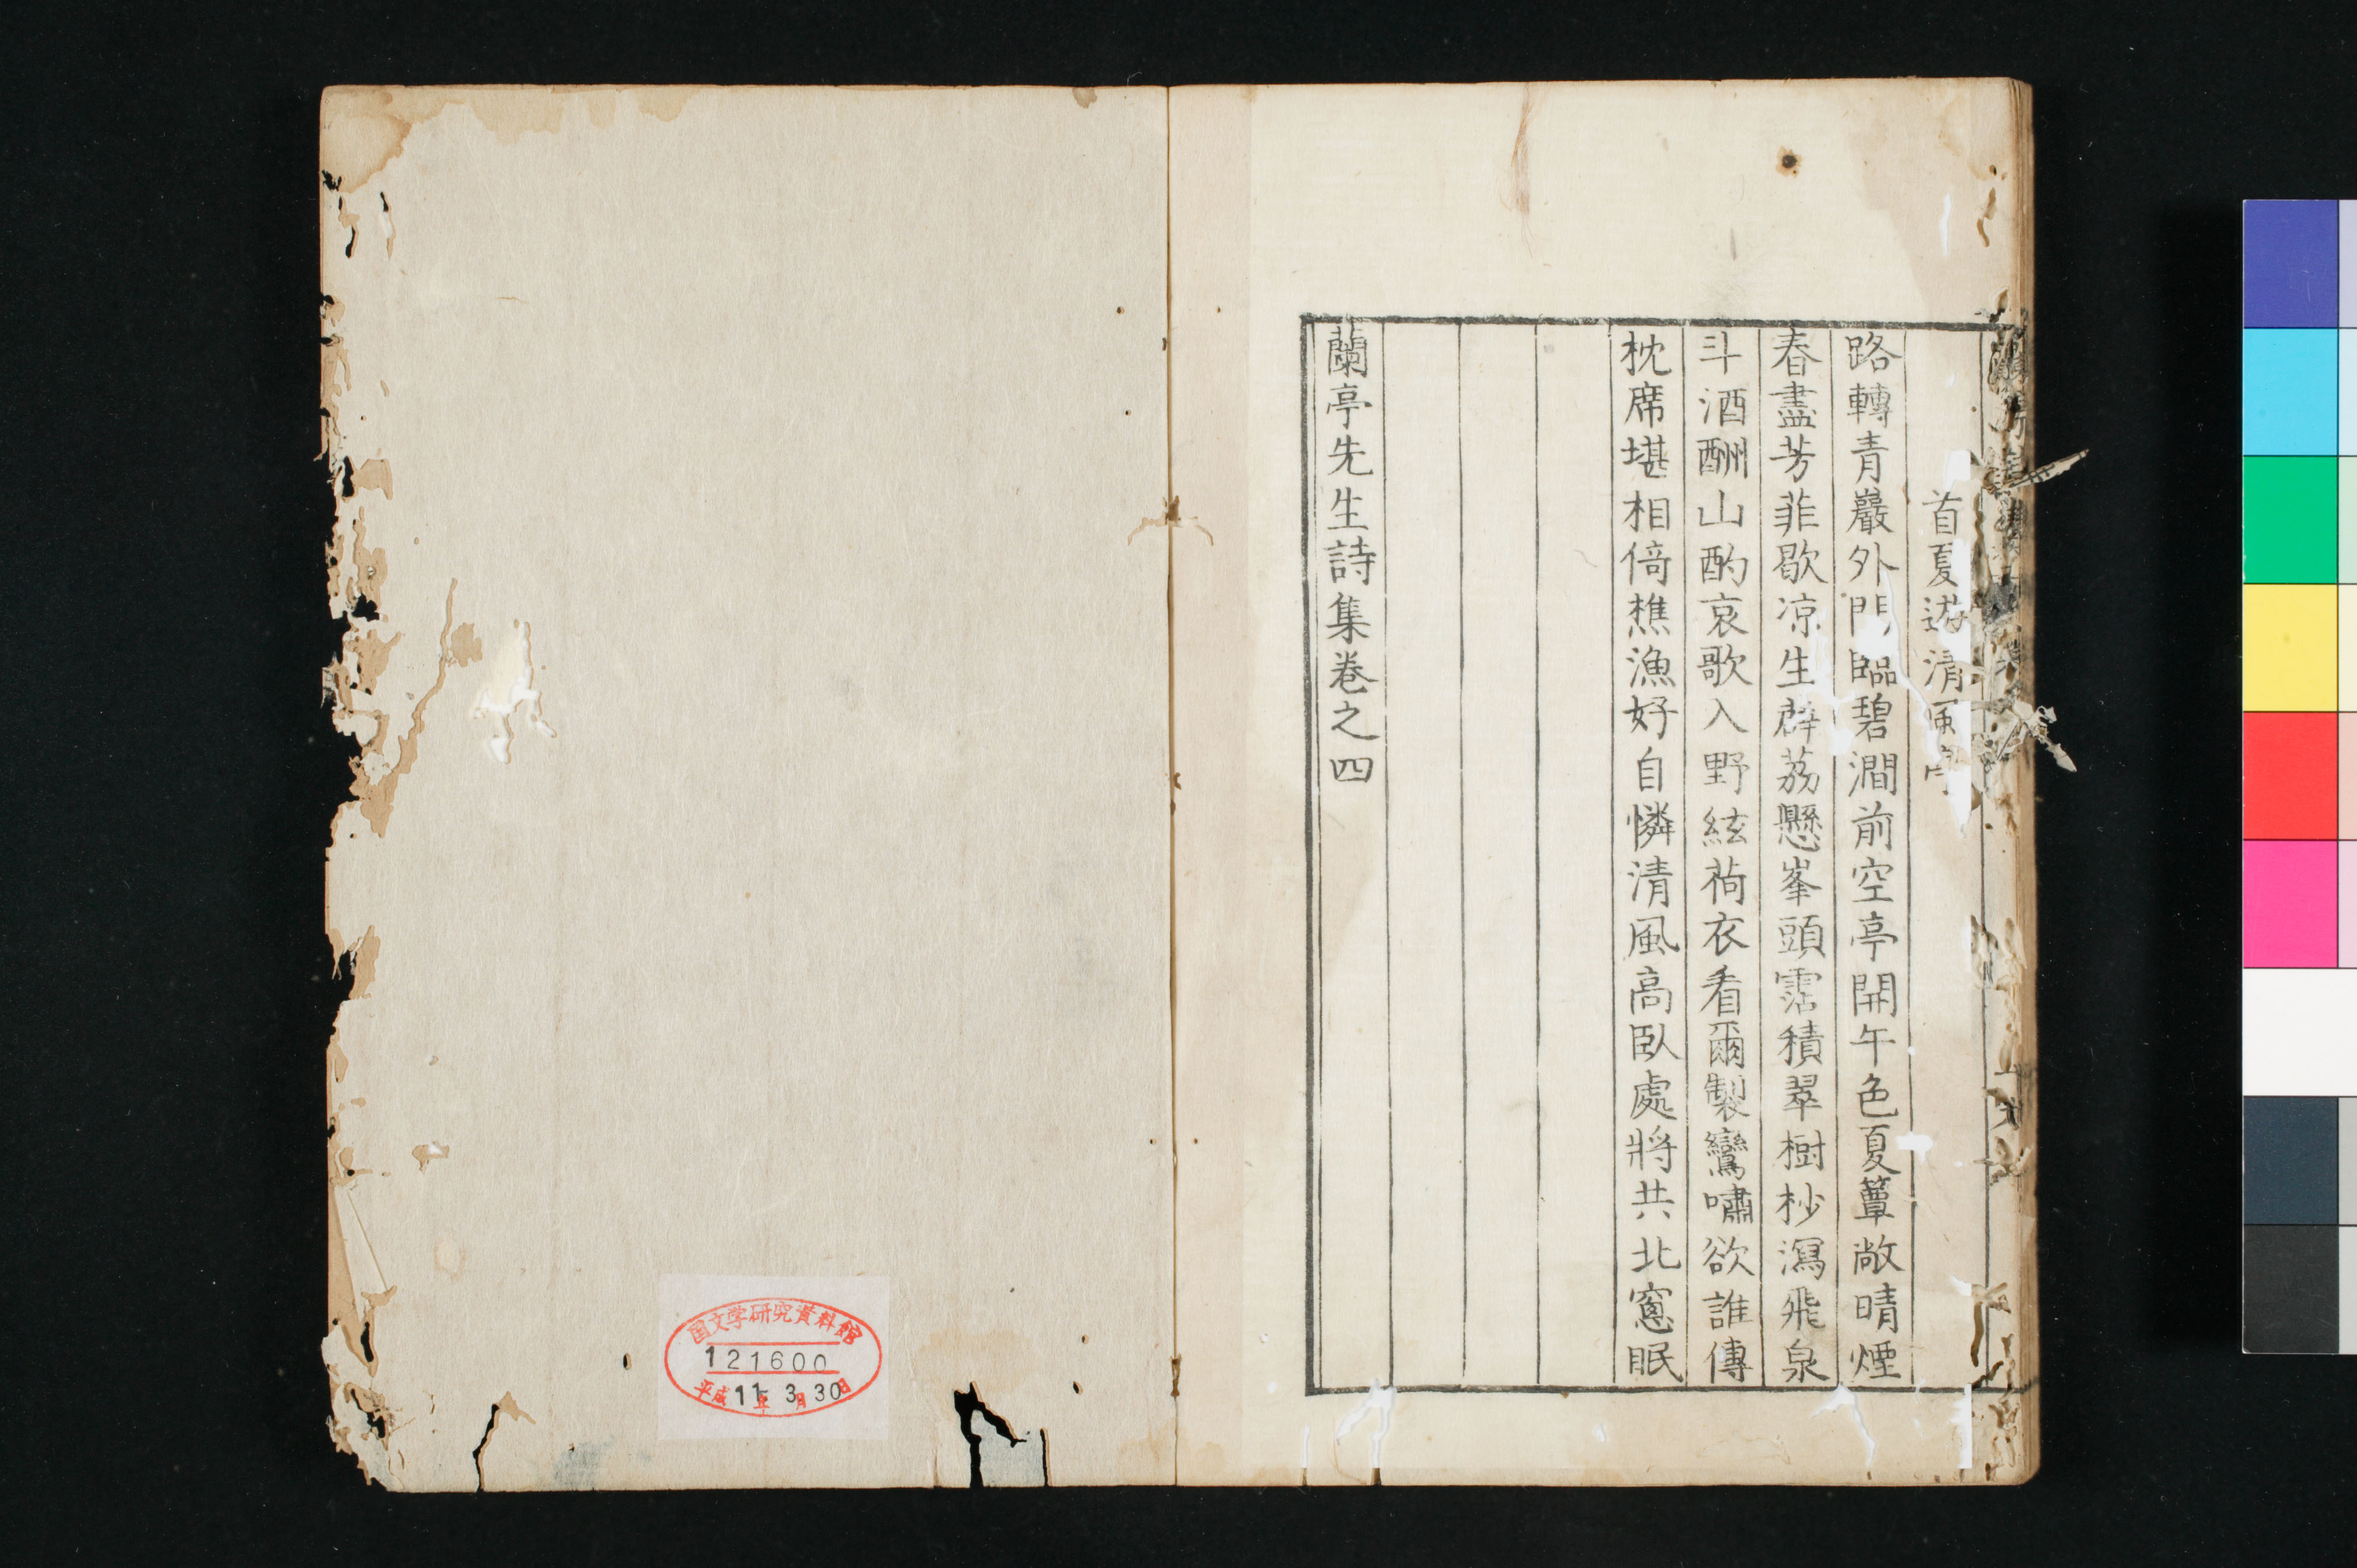 首夏遊清風亭
路轉青巖外門臨碧澗前空亭開午色夏簟敞晴煙
春盡芳菲歇凉生薜荔懸峯頭霑積翠樹杪瀉飛泉
斗酒酬山酌哀歌入野絃荷衣看爾製鸞嘯欲誰傳
枕席堪相倚樵漁好自憐清風高臥處將共北窓眠
蘭亭先生詩集卷之四
国文学研究資料館
121600
平成11年3月30日